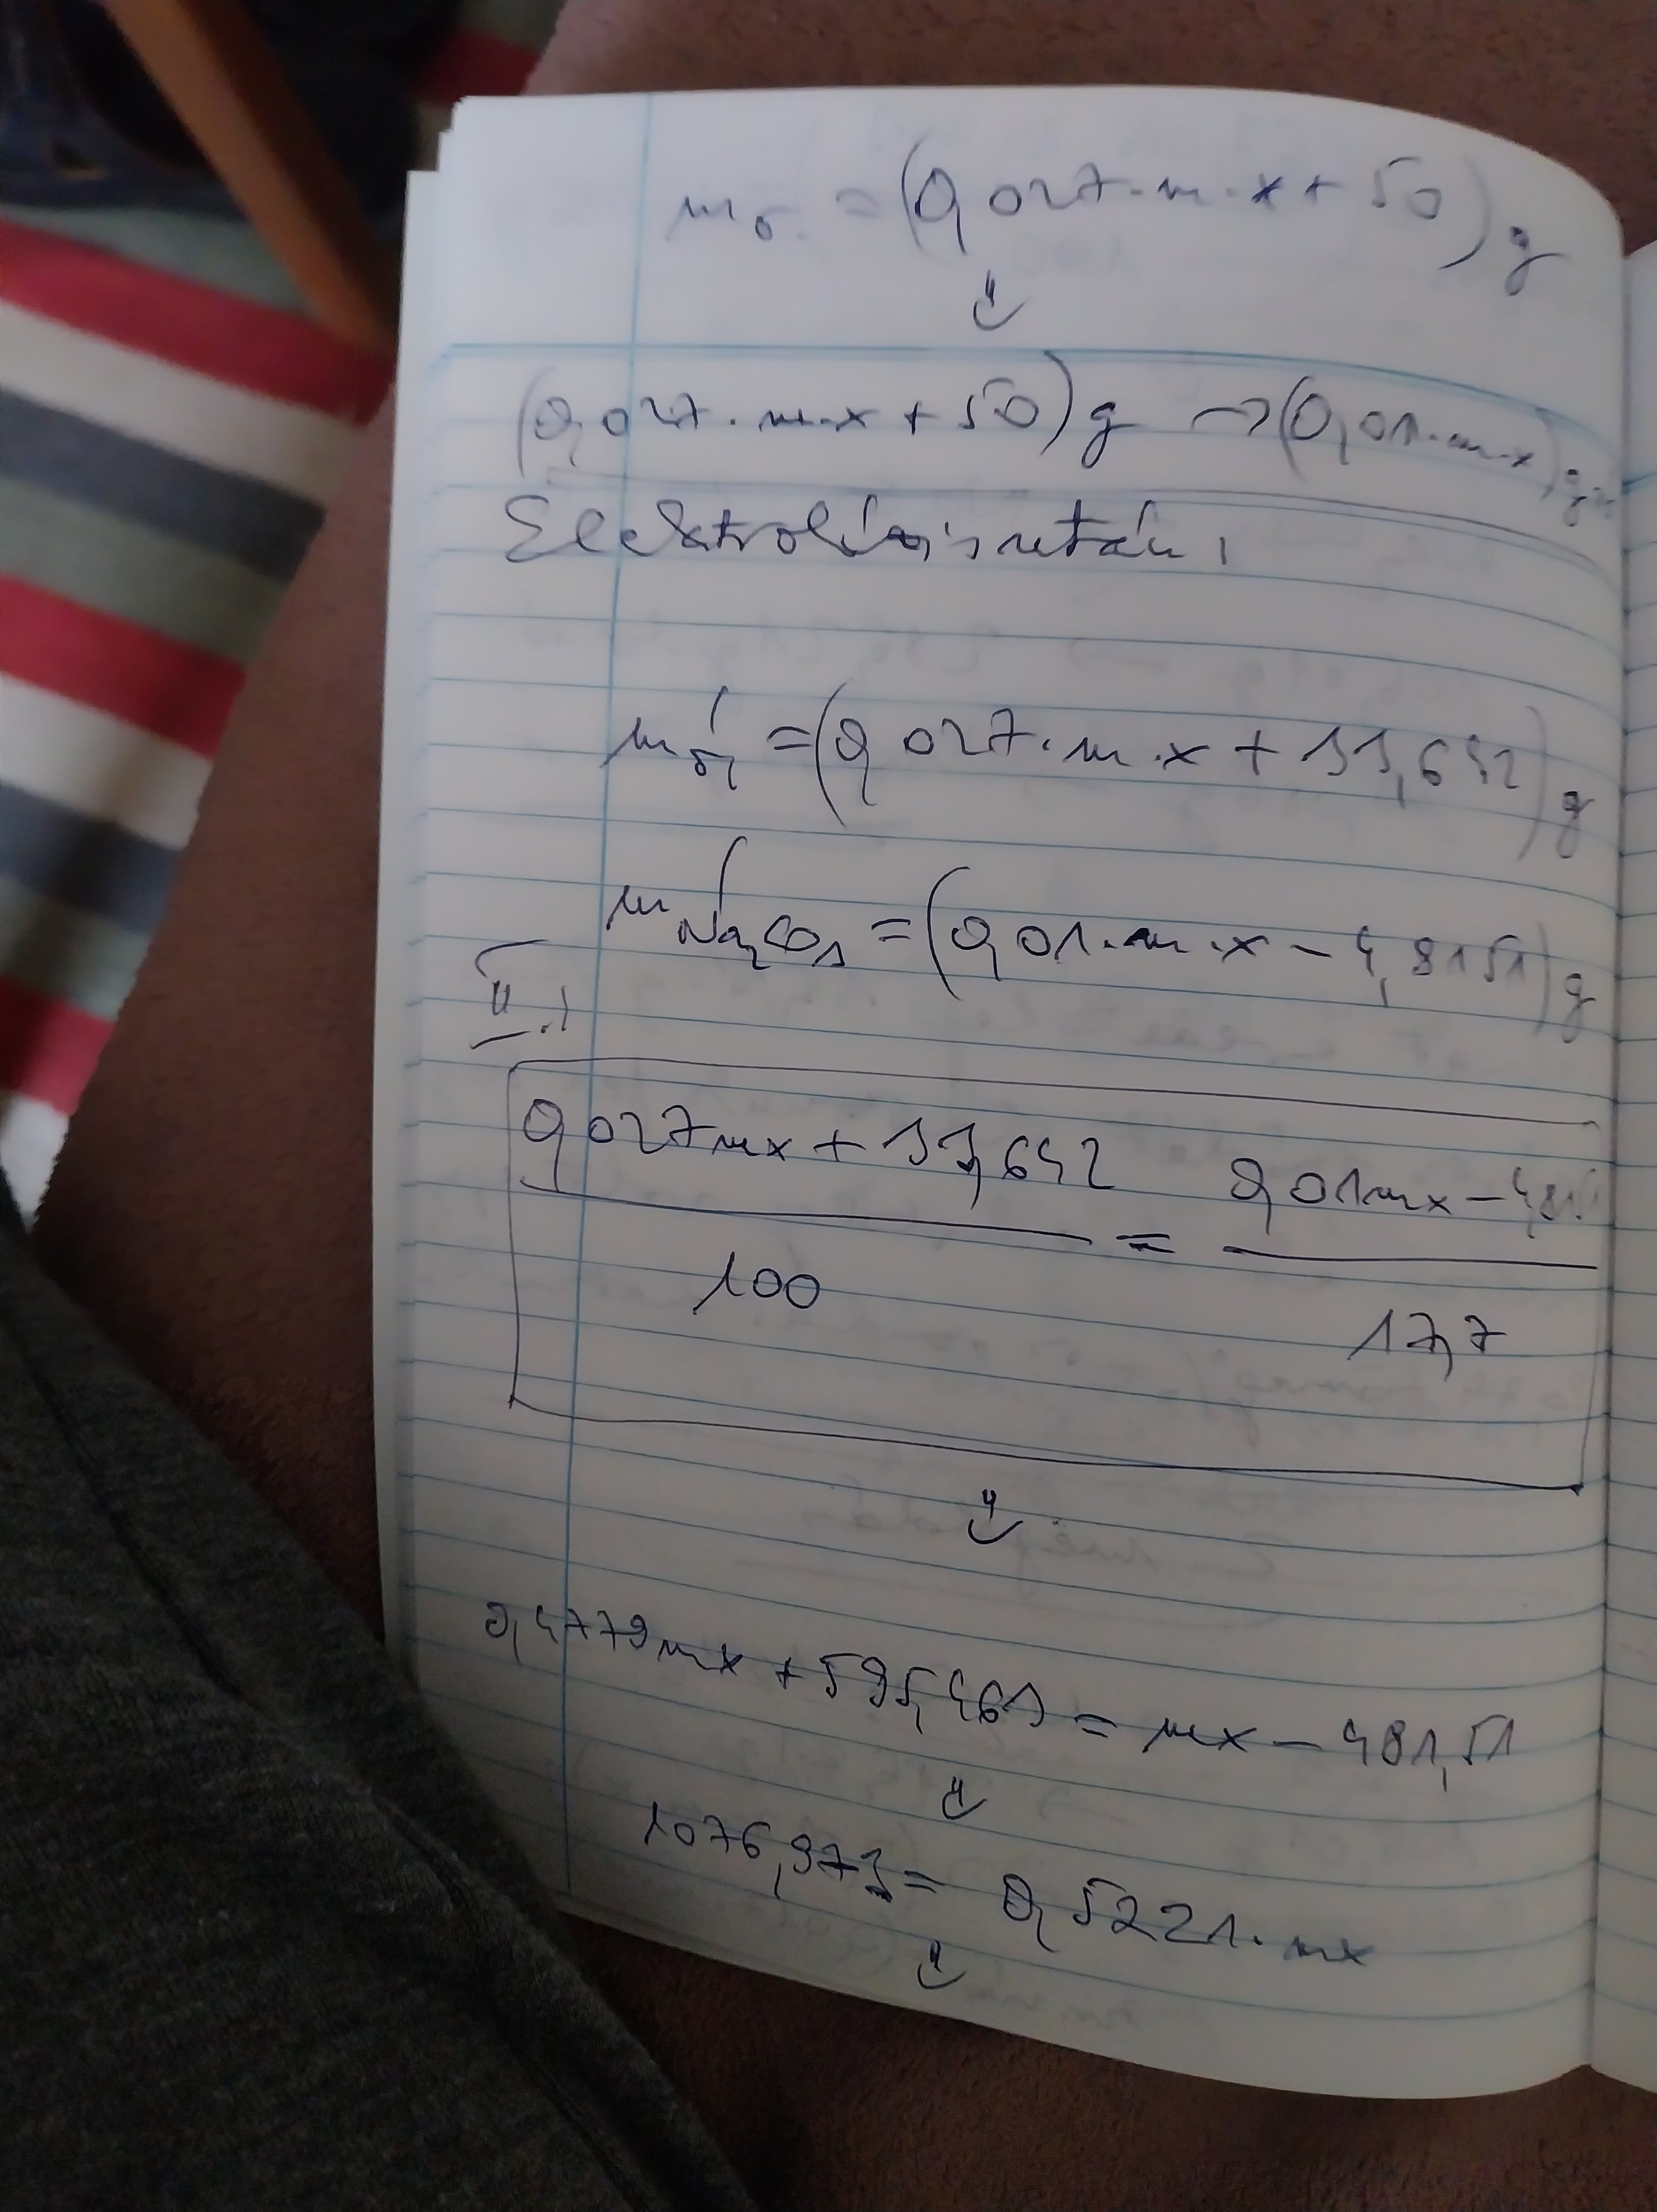 mö = (0,027·m·x + 50) g
⇓
(0,027·m·x + 50) g → (0,01·m·x) g
Elektrolízis után:
mö' = (0,027·m·x + 33,642) g
m'Na2CO3 = (0,01·m·x - 4,8151) g
II.:
0,027mx + 33,642 / 100 = 0,01mx - 4,81 / 17,7
⇓
0,4779mx + 595,463 = mx - 481,51
⇓
1076,973 = 0,5221·mx
⇓